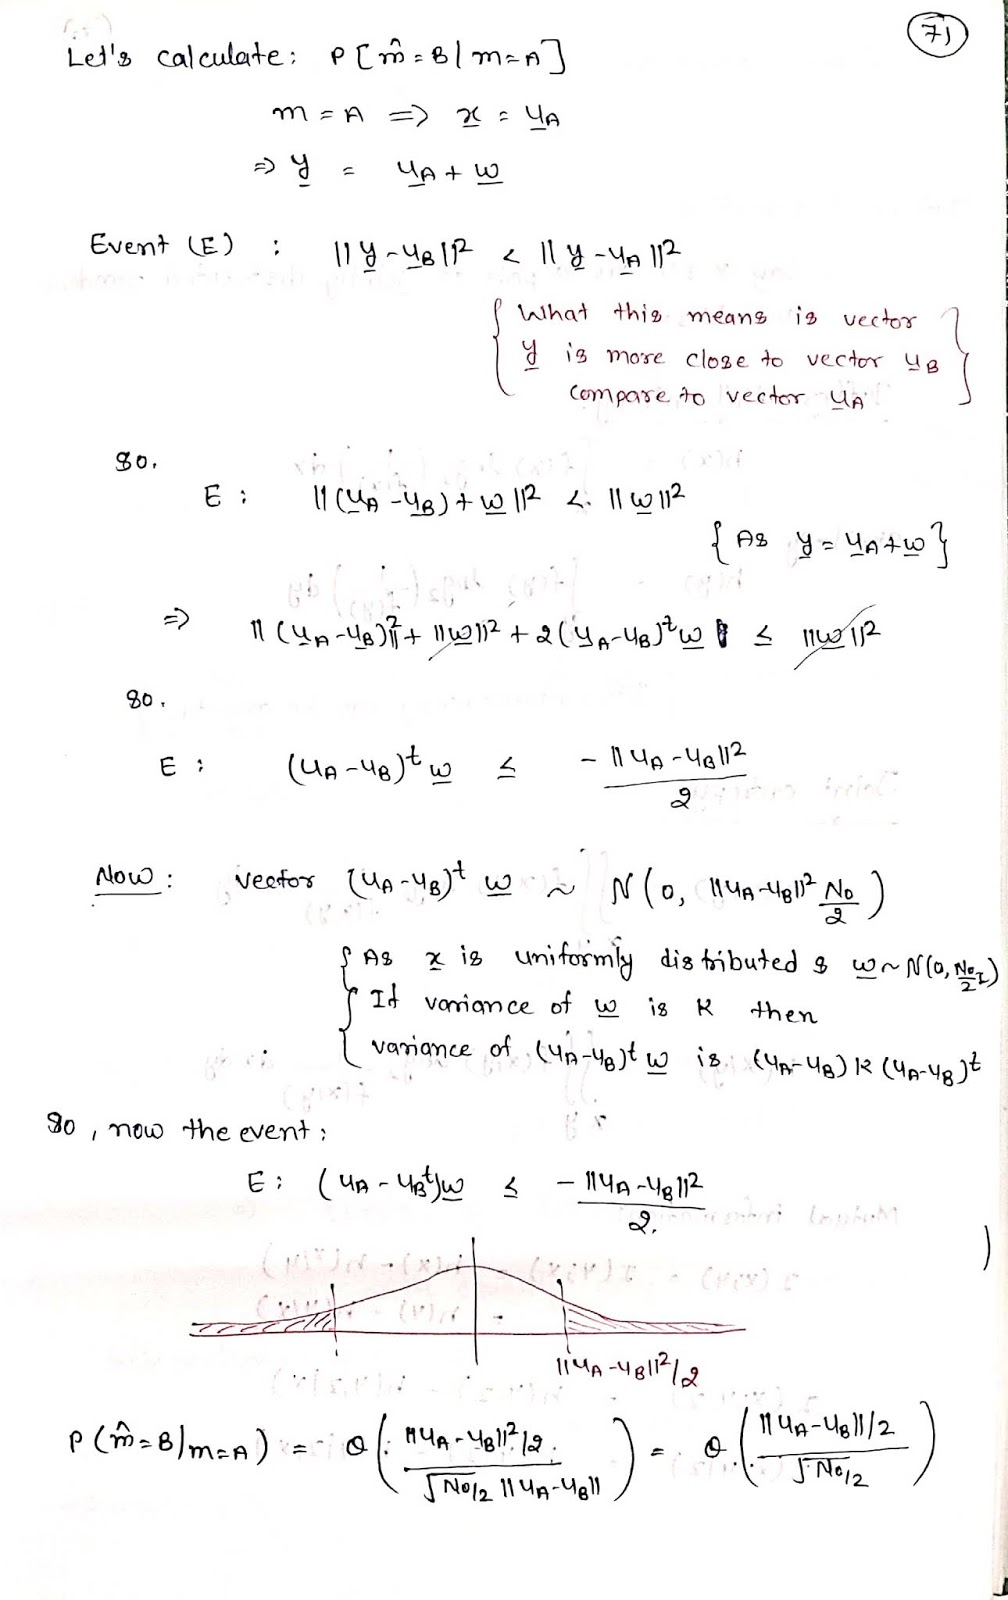 71
Let's calculate: P[m̂=B|m=A]
m = A => x = uA
=> y = uA + w
Event (E) : ||y-uB||² < ||y-uA||²
{ What this means is vector
y is more close to vector uB
compare to vector uA }
So,
E : ||(uA-uB)+w||² < ||w||²
{ As y = uA+w }
=> ||(uA-uB)||² + ||w||² + 2(uA-uB)ᵗw ≤ ||w||²
So,
E : (uA-uB)ᵗ w ≤ -||uA-uB||²/2
Now : vector (uA-uB)ᵗ w ~ N(0, ||uA-uB||² No/2)
{ As x is uniformly distributed & w~N(0, No/2 I)
If variance of w is K then
variance of (uA-uB)ᵗ w is (uA-uB) K (uA-uB)ᵗ
So, now the event :
E : (uA-uBᵗ)w ≤ -||uA-uB||²/2.
||uA-uB||²/2
P(m̂=B|m=A) = Q(||uA-uB||²/2 / √No/2 ||uA-uB||) = Q(||uA-uB||/2 / √No/2)